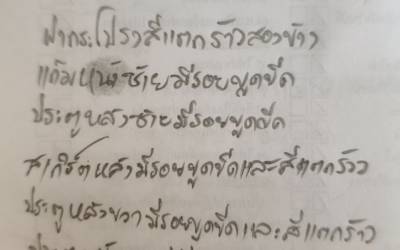 ฝากระโปรงสีแตกร้าวสองข้าง
แก้มหน้าซ้ายมีรอยขูดขีด
ประตูหลังซ้ายมีรอยขูดขีด
สเกิร์ตหลังมีรอยขูดขีดและสีแตกร้าว
ประตูหลังขวามีรอยขูดขีดและสีแตกร้าว